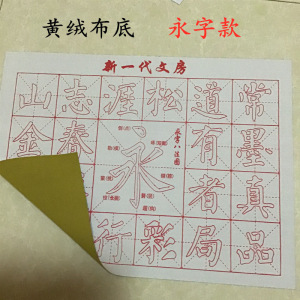 黄绒布底 永字款
新一代文房
山志涯松道常
金春 有墨
永字八法图
永
者真
行彩局品